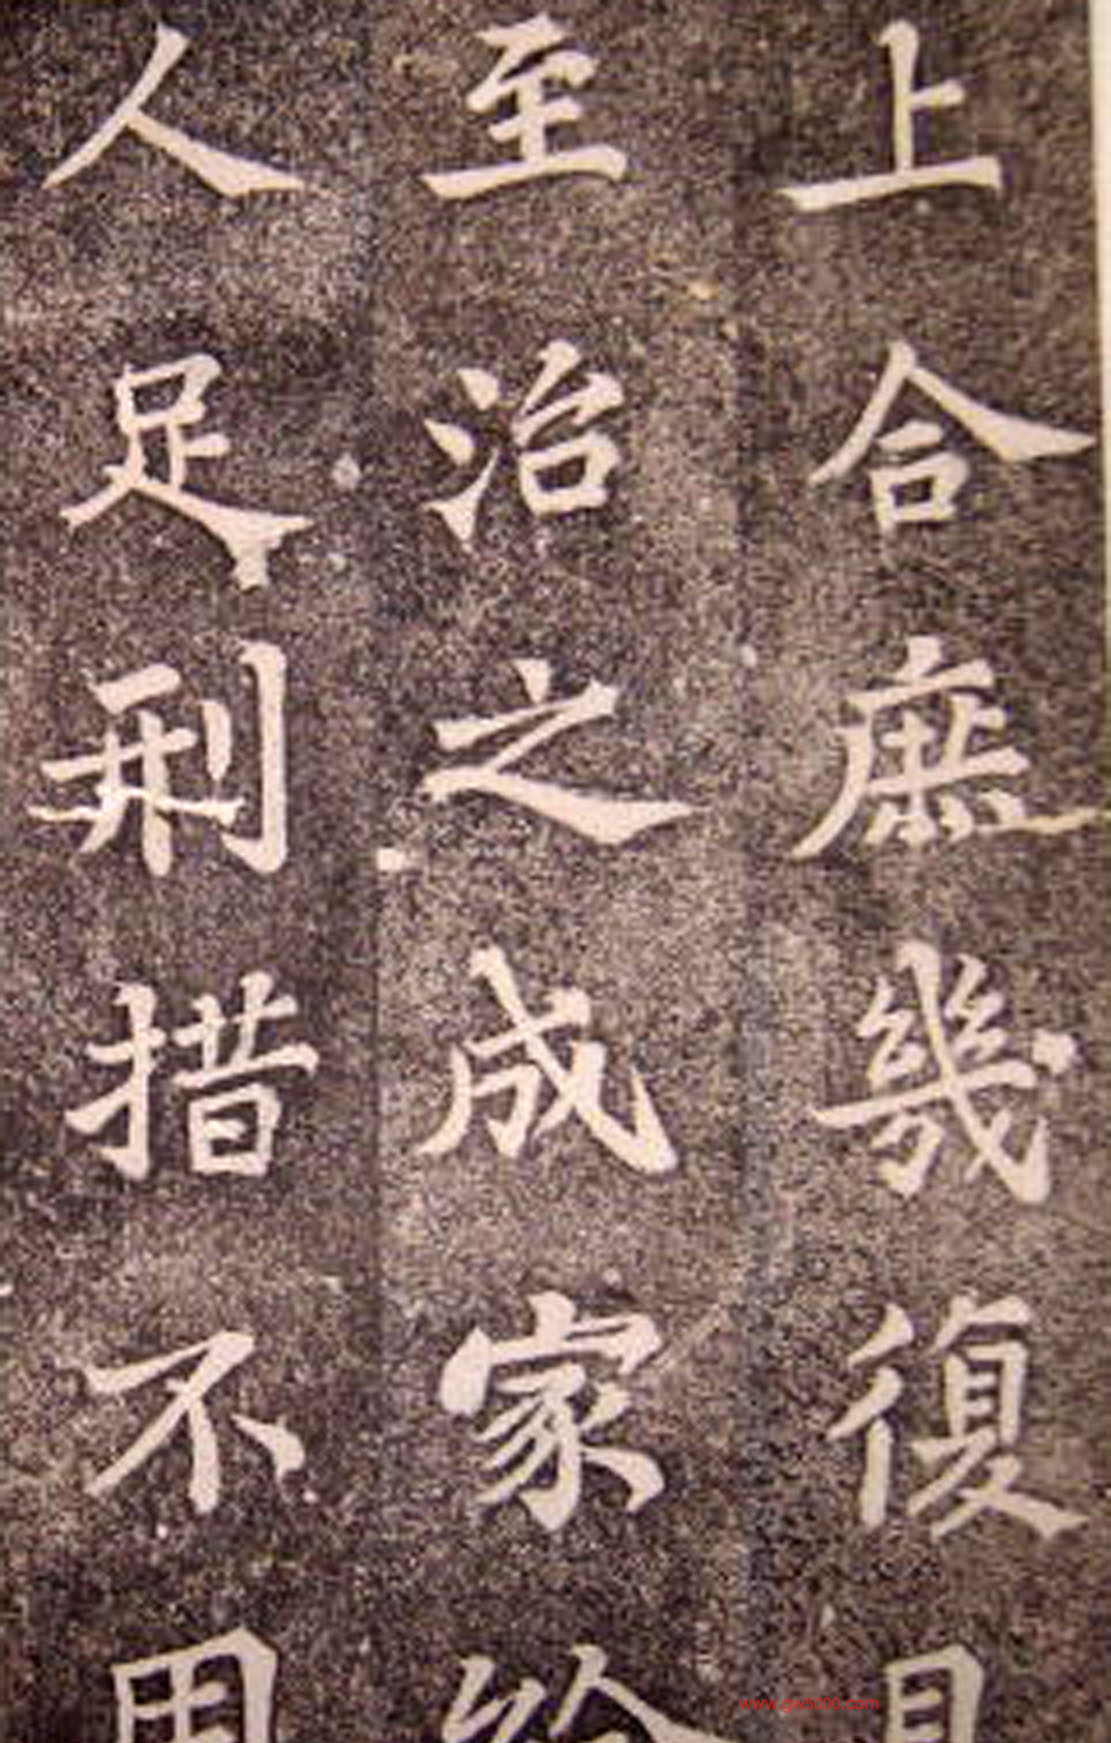 上合庶幾復見
至治之成家給
人足刑措不用
www.gw5000.com